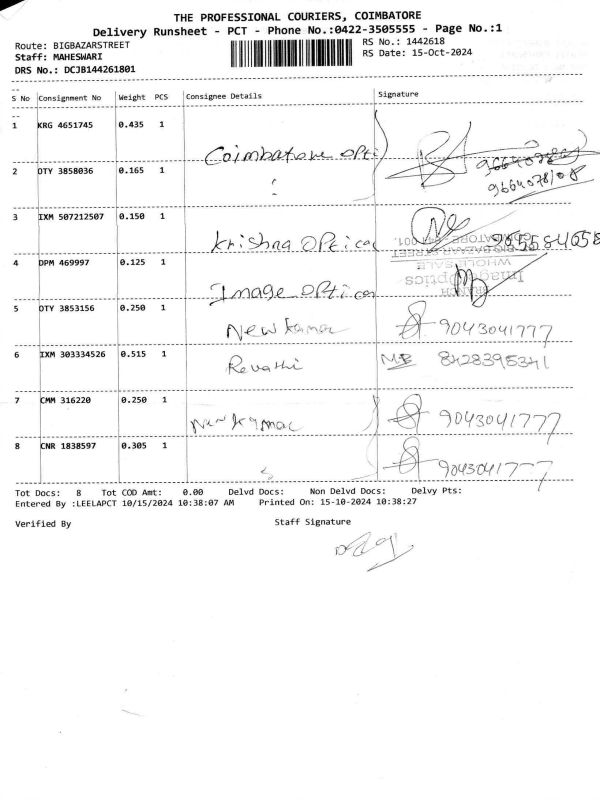 THE PROFESSIONAL COURIERS, COIMBATORE
Delivery Runsheet - PCT - Phone No.:0422-3505555 - Page No.:1
Route: BIGBAZARSTREET RS No.: 1442618
Staff: MAHESWARI RS Date: 15-Oct-2024
DRS No.: DCJB144261801
S No Consignment No Weight PCS Consignee Details Signature
1 KRG 4651745 0.435 1
Coimbatore opti
2 OTY 3858036 0.165 1
9664078108
3 IXM 507212507 0.150 1
Krishna OPtical 9655584058
4 DPM 469997 0.125 1
Image OPtical
Image Optics
WHOLE SALE
BIG BAZAAR STREET
COIMBATORE - 641 001.
5 OTY 3853156 0.250 1
New Kamal 9043041777
6 IXM 303334526 0.515 1
Revathi MB 8428395341
7 CMM 316220 0.250 1
New Kamal 9043041777
8 CNR 1838597 0.305 1
9043041777
Tot Docs: 8 Tot COD Amt: 0.00 Delvd Docs: Non Delvd Docs: Delvy Pts:
Entered By :LEELAPCT 10/15/2024 10:38:07 AM Printed On: 15-10-2024 10:38:27
Verified By Staff Signature